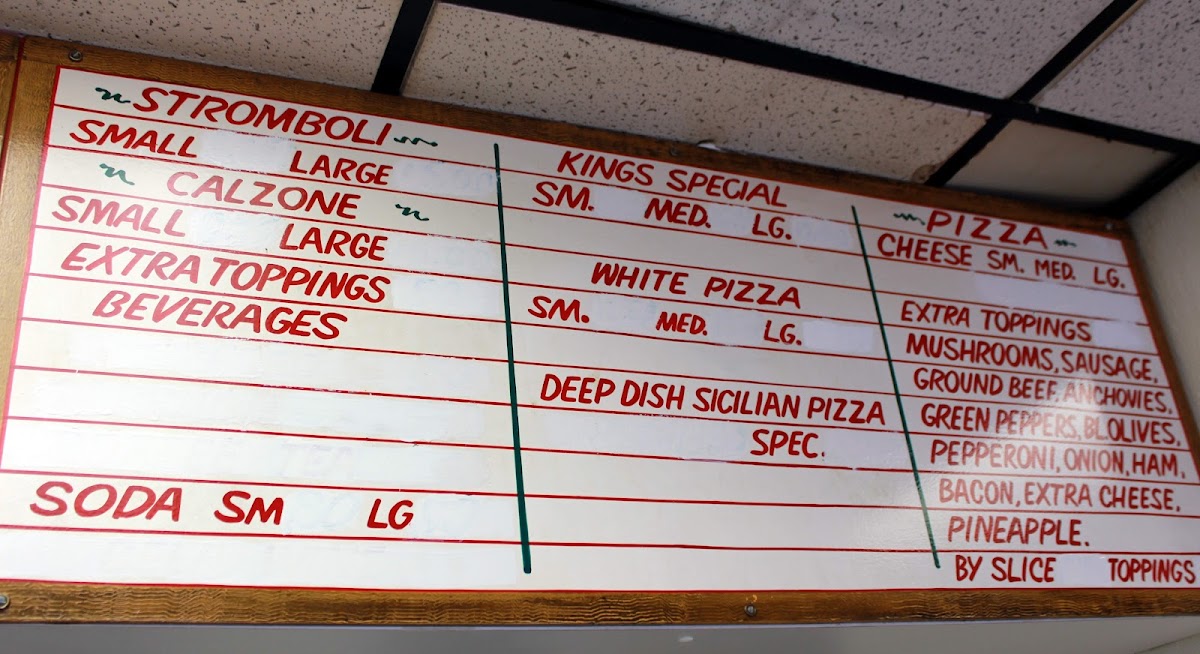 STROMBOLI
SMALL LARGE
CALZONE
SMALL LARGE
EXTRA TOPPINGS
BEVERAGES
SODA SM LG
KINGS SPECIAL
SM. MED. LG.
WHITE PIZZA
SM. MED. LG.
DEEP DISH SICILIAN PIZZA
SPEC.
PIZZA
CHEESE SM. MED. LG.
EXTRA TOPPINGS
MUSHROOMS, SAUSAGE,
GROUND BEEF, ANCHOVIES,
GREEN PEPPERS, BL.OLIVES,
PEPPERONI, ONION, HAM,
BACON, EXTRA CHEESE,
PINEAPPLE.
BY SLICE TOPPINGS